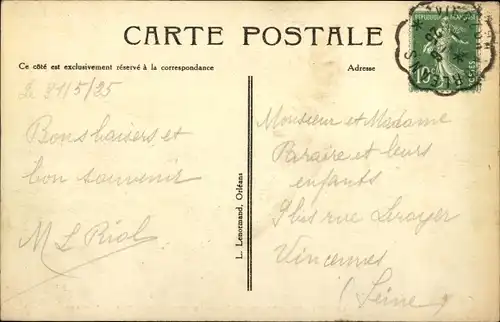 CARTE POSTALE
Ce côté est exclusivement réservé à la correspondance
Adresse
Le 31/5/25
Bons baisers et
bon souvenir
M L Riol
L. Lenormand, Orléans
Monsieur et Madame
Paraire et leurs
enfants
rue Leroyer
Vincennes
(Seine)